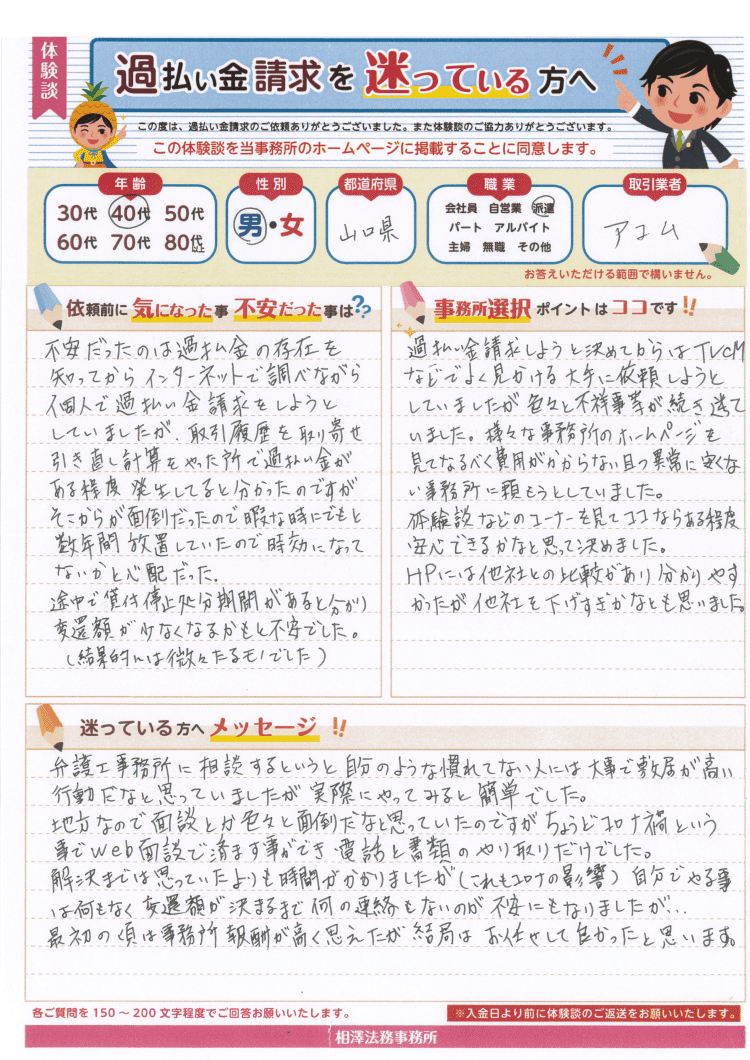 体験談
過払い金請求を迷っている方へ
この度は、過払い金請求のご依頼ありがとうございました。また体験談のご協力ありがとうございます。
この体験談を当事務所のホームページに掲載することに同意します。
年齢 性別 都道府県 職業 取引業者
30代 40代 50代
60代 70代 80代以上
男・女
山口県
会社員 自営業 派遣
パート アルバイト
主婦 無職 その他
アコム
お答えいただける範囲で構いません。
依頼前に気になった事 不安だった事は??
不安だったのは過払金の存在を
知ってからインターネットで調べながら
個人で過払い金請求をしようと
していましたが、取引履歴を取り寄せ
引き直し計算をやった所で過払い金が
ある程度発生してると分かったのですが
そこからが面倒だったので暇な時にでもと
数年間放置していたので時効になって
ないかと心配だった.
途中で貸付停止処分期間があると分かり
変還額が少なくなるかもと不安でした。
(結果的には微々たるモノでした)
事務所選択ポイントはココです!!
過払い金請求しようと決めてからはTVCM
などでよく見かける大手に依頼しようと
していましたが色々と不祥事等が続き迷て
いました。様々な事務所のホームページを
見てなるべく費用がかからない且つ異常に安くな
い事務所に頼もうとしていました。
体験談などのコーナーを見てココならある程度
安心できるかなと思って決めました。
HPには他社との比較があり分かりやす
かったが他社を下げすぎかなとも思いました。
迷っている方へメッセージ!!
弁護士事務所に相談するというと自分のような慣れてない人には大事で敷居が高い
行動だなと思っていましたが実際にやってみると簡単でした。
地方なので面談とか色々と面倒だなと思っていたのですがちょうどコロナ禍という
事でWeb面談で済ます事ができ電話と書類のやり取りだけでした。
解決までは思っていたよりも時間がかかりましたが(これもコロナの影響)自分でやる事
は何もなく変還額が決まるまで何の連絡もないのが不安にもなりましたが...
最初の頃は事務所報酬が高く思えたが結局はお任せして良かったと思います。
各ご質問を150〜200文字程度でご回答お願いいたします。
※入金日より前に体験談のご返送をお願いいたします。
相澤法務事務所